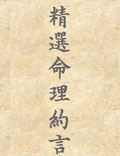 精選命理約言